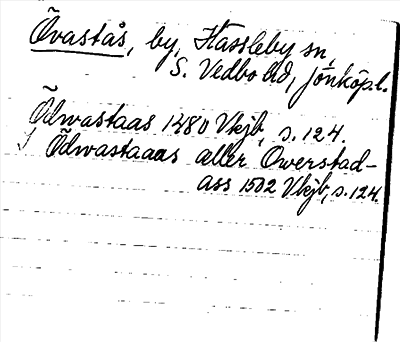 Övastås, by, Hässleby sn,
S. Vedbo hd, Jönköp.l.
Ödwastaas 1480 Vkjb, s. 124.
J Ödwastaaas æller Owerstad-
ass 1502 Vkjb, s. 124.